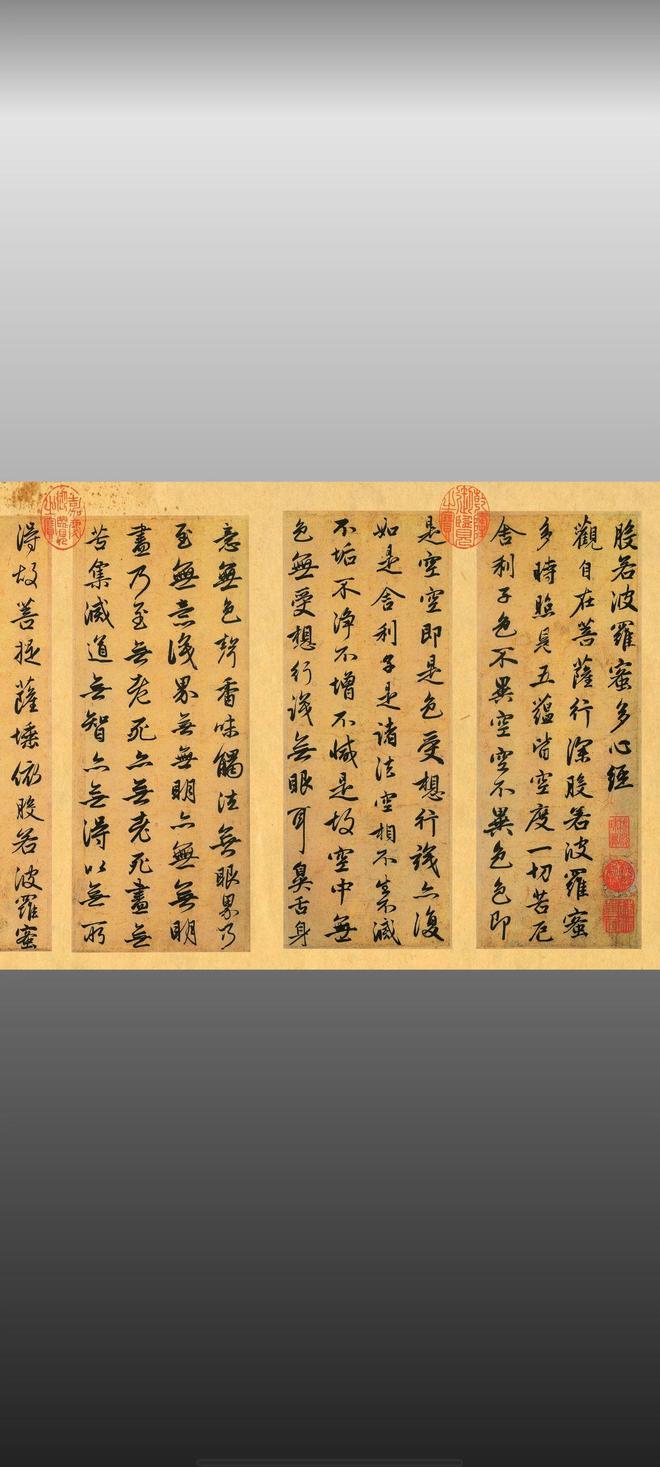 般若波羅蜜多心經
觀自在菩薩行深般若波羅蜜
多時照見五蘊皆空度一切苦厄
舍利子色不異空空不異色色即
是空空即是色受想行識亦復
如是舍利子是諸法空相不生不滅
不垢不淨不增不減是故空中無
色無受想行識無眼耳鼻舌身
意無色聲香味觸法無眼界乃
至無意識界無無明亦無無明
盡乃至無老死亦無老死盡無
苦集滅道無智亦無得以無所
得故菩提薩埵依般若波羅蜜
乾隆御覽之寶
嘉慶御覽之寶